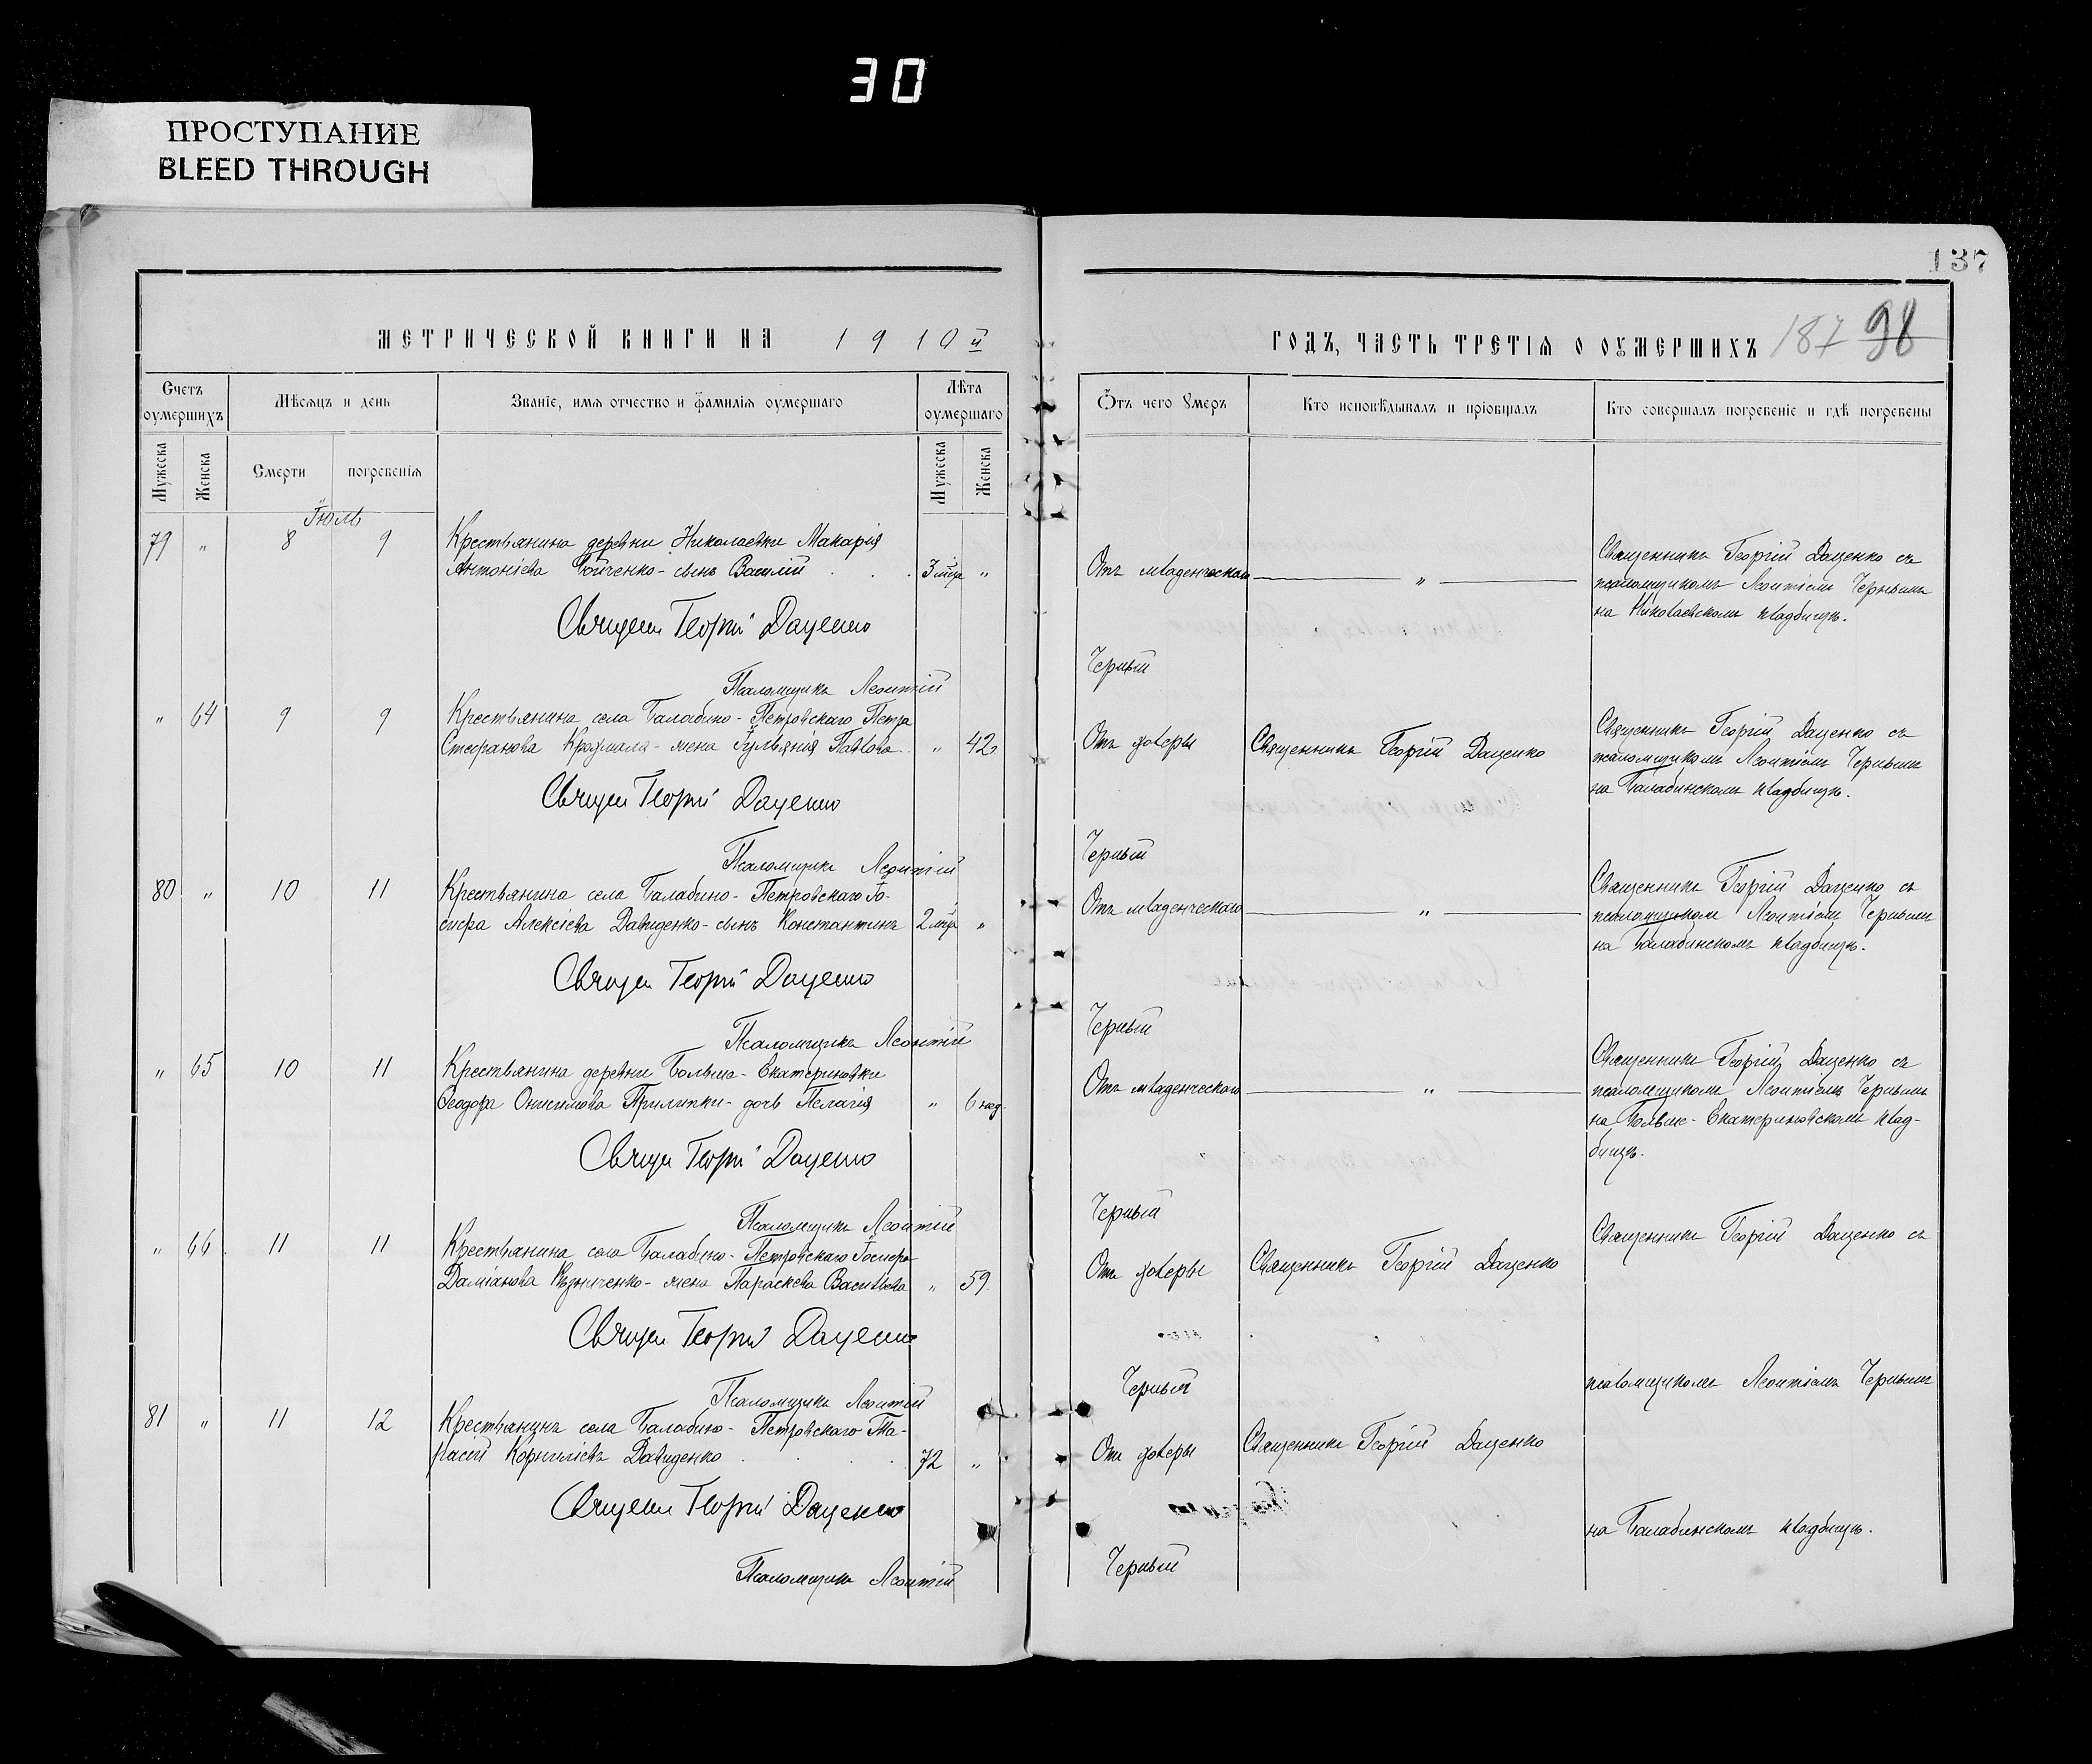 30
ПРОСТУПАНИЕ
BLEED THROUGH
137
МЕТРИЧЕСКОЙ КНИГИ НА 1910й
ГОДЪ, ЧАСТЬ ТРЕТІЯ О ОУМЕРШИХЪ 187 98
Счетъ оумершихъ
Мѣсяцъ и день
Званіе, имя отчество и фамилія оумершаго
Лѣта оумершаго
Отъ чего умеръ
Кто исповѣдывалъ и пріобщалъ
Кто совершалъ погребеніе и гдѣ погребены
Мужеска
Женска
Смерти
погребенія
Мужеска
Женска
Іюль
79 " 8 9 Крестьянина деревни Николаевки Макарія
Антоніева сынъ Василій 3 мца "
Отъ младенческой "
Священникъ Георгій Даценко съ
псаломщикомъ Леонтіемъ Чернымъ
на Николаевскомъ кладбищѣ.
Священ Георгій Даценко
Псаломщикъ Леонтій Черный
" 64 9 9 Крестьянина села Балабино-Петровскаго Петра
Стефанова жена Іуліянія Павлова " 42
Отъ холеры
Священникъ Георгій Даценко
Священникъ Георгій Даценко съ
псаломщикомъ Леонтіемъ Чернымъ
на Балабинскомъ кладбищѣ.
Священ Георгій Даценко
Псаломщикъ Леонтій Черный
80 " 10 11 Крестьянина села Балабино-Петровскаго Іо-
сифа Алексіева Давиденко-сынъ Константинъ 2 мца "
Отъ младенческаго "
Священникъ Георгій Даценко съ
псаломщикомъ Леонтіемъ Чернымъ
на Балабинскомъ кладбищѣ.
Священ Георгій Даценко
Псаломщикъ Леонтій Черный
" 65 10 11 Крестьянина деревни Больше-Екатериновки
Ѳеодора Онисимова Прилипки-дочь Пелагія " 6 нед.
Отъ младенческаго "
Священникъ Георгій Даценко съ
псаломщикомъ Леонтіемъ Чернымъ
на Больше-Екатериновскомъ клад-
бищѣ.
Священ Георгій Даценко
Псаломщикъ Леонтій Черный
" 66 11 11 Крестьянина села Балабино-Петровскаго Іосифа
Даміанова жена Параскева Васильева " 59
Отъ холеры
Священникъ Георгій Даценко
Священникъ Георгій Даценко съ
Священ Георгій Даценко
Псаломщикъ Леонтій Черный
псаломщикомъ Леонтіемъ Чернымъ
81 " 11 12 Крестьянинъ села Балабино-Петровскаго Та-
расій Корниліевъ Давиденко 72 "
Отъ холеры
Священникъ Георгій Даценко
Священ Георгій Даценко
на Балабинскомъ кладбищѣ.
Псаломщикъ Леонтій Черный